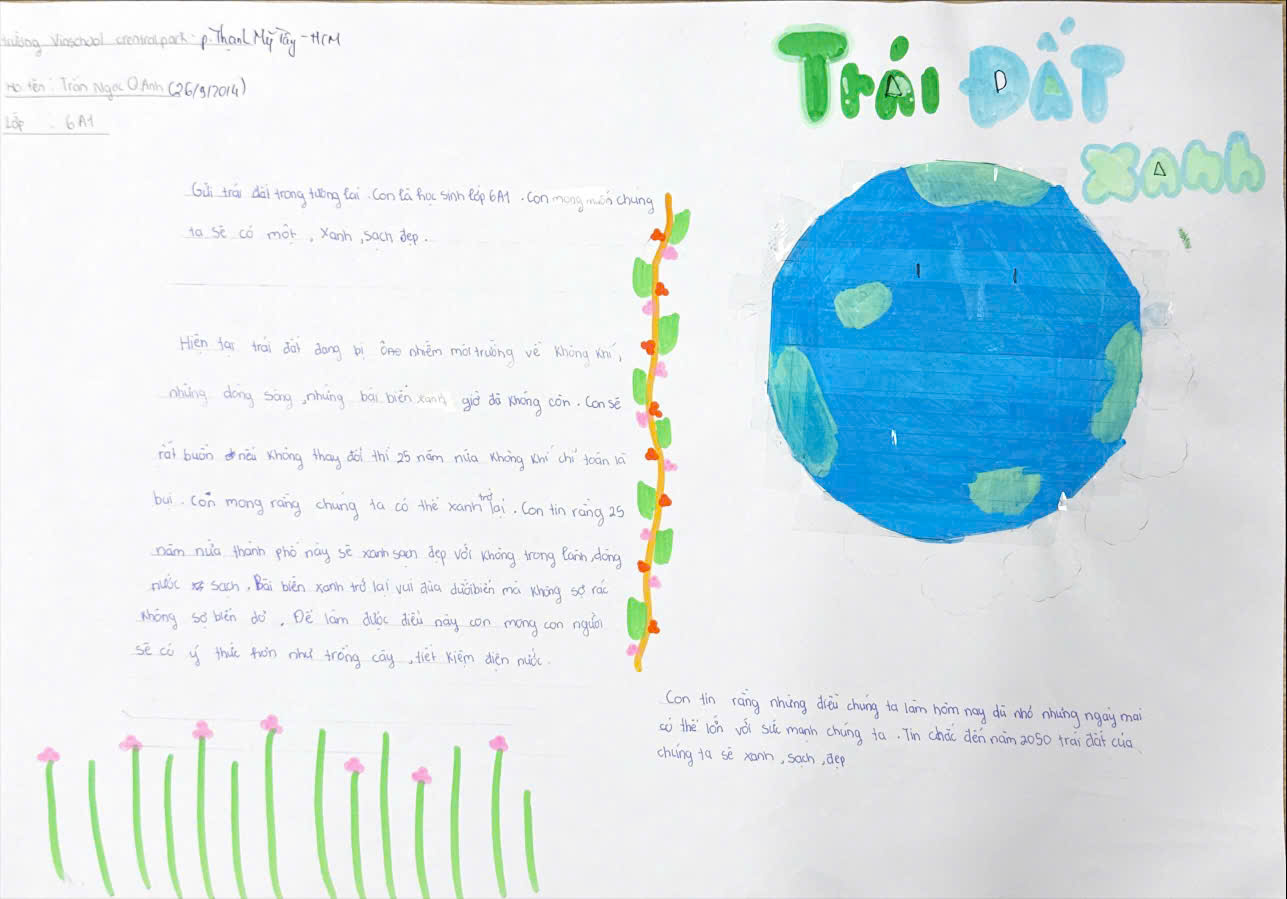 trường Vinschool crentral park - p. Thạnh Mỹ Tây - HCM
Họ tên : Trần Ngọc Q Anh (26/9/2014)
Lớp : 6A1
TRÁI ĐẤT
xanh
Gửi trái đất trong tương lai . Con là học sinh lớp 6A1 . Con mong muốn chúng
ta sẽ có một , xanh , sạch đẹp .
Hiện tại trái đất đang bị ô nhiễm môi trường về không khí ,
những dòng sông , những bãi biển xanh giờ đã không còn . Con sẽ
rất buồn nếu không thay đổi thì 25 năm nữa không khí chỉ toàn là
bụi . Con mong rằng chúng ta có thể xanh trở lại . Con tin rằng 25
năm nữa thành phố này sẽ xanh sạch đẹp với không trong lành , dòng
nước sạch . Bãi biển xanh trở lại vui đùa dưới biển mà không sợ rác
không sợ biển dơ . Để làm được điều này con mong con người
sẽ có ý thức hơn như trồng cây , tiết kiệm điện nước .
Con tin rằng những điều chúng ta làm hôm nay dù nhỏ nhưng ngày mai
có thể lớn với sức mạnh chúng ta . Tin chắc đến năm 2050 trái đất của
chúng ta sẽ xanh , sạch , đẹp